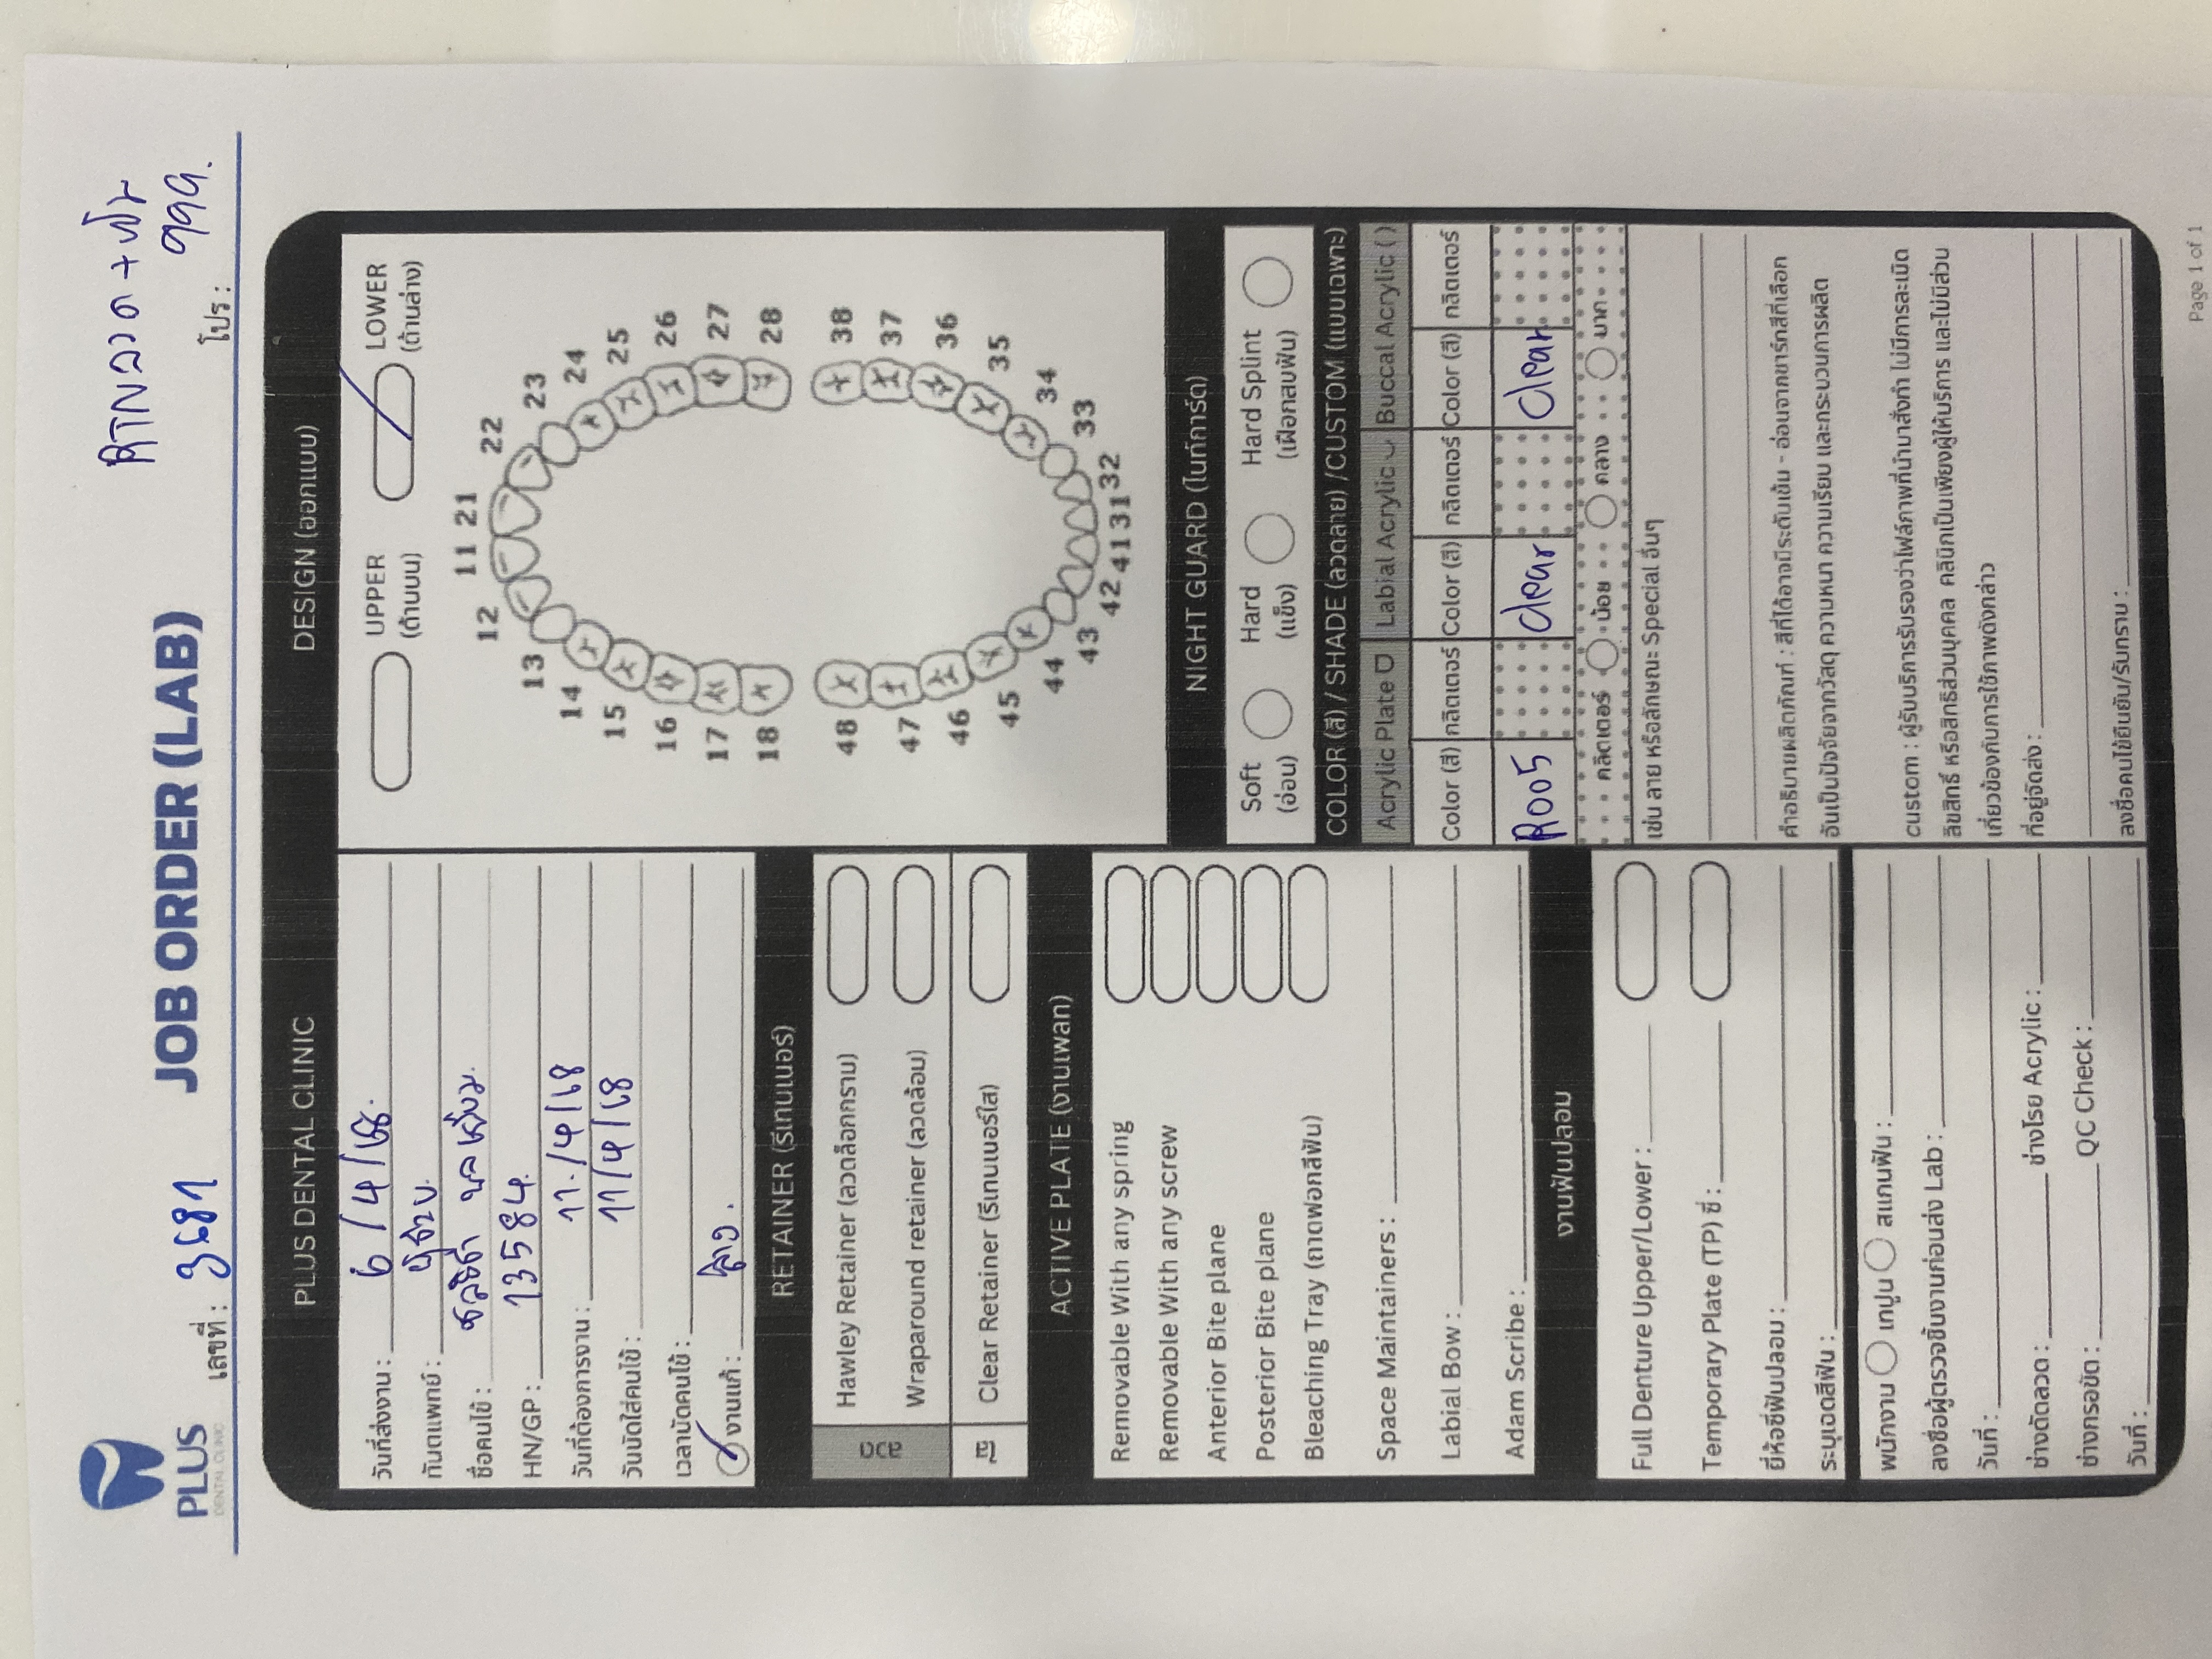 PLUS
DENTAL CLINIC
เลขที่ :
JOB ORDER (LAB)
RTN ลวด +
โปร : 999.
PLUS DENTAL CLINIC
วันที่ส่งงาน : 6/4/68.
ทันตแพทย์ :
ชื่อคนไข้ :
HN/GP : 13584.
วันที่ต้องการงาน : 11/4/68
วันนัดใส่คนไข้ : 11/4/68
เวลานัดคนไข้ :
งานแก้ :
RETAINER (รีเทนเนอร์)
ลวด
Hawley Retainer (ลวดล็อกกราม)
Wraparound retainer (ลวดล้อม)
ใส
Clear Retainer (รีเทนเนอร์ใส)
ACTIVE PLATE (งานเพลท)
Removable With any spring
Removable With any screw
Anterior Bite plane
Posterior Bite plane
Bleaching Tray (ถาดฟอกสีฟัน)
Space Maintainers :
Labial Bow :
Adam Scribe :
งานฟันปลอม
Full Denture Upper/Lower :
Temporary Plate (TP) ซี่ :
ยี่ห้อซี่ฟันปลอม :
ระบุเฉดสีฟัน :
พนักงาน เทปูน สแกนฟัน :
ลงชื่อผู้ตรวจชิ้นงานก่อนส่ง Lab :
วันที่ :
ช่างดัดลวด : ช่างโรย Acrylic :
ช่างกรอขัด : QC Check :
วันที่ :
DESIGN (ออกแบบ)
UPPER
(ด้านบน)
LOWER
(ด้านล่าง)
18 17 16 15 14 13 12 11 21 22 23 24 25 26 27 28
48 47 46 45 44 43 42 41 31 32 33 34 35 36 37 38
NIGHT GUARD (ไนท์การ์ด)
Soft
(อ่อน)
Hard
(แข็ง)
Hard Splint
(เฝือกสบฟัน)
COLOR (สี) / SHADE (ลวดลาย) /CUSTOM (แบบเฉพาะ)
Acrylic Plate Labial Acrylic Buccal Acrylic ( )
Color (สี) กลิตเตอร์ Color (สี) กลิตเตอร์ Color (สี) กลิตเตอร์
R005 clear clear
กลิตเตอร์ น้อย กลาง มาก
เช่น ลาย หรือลักษณะ Special อื่นๆ
คำอธิบายผลิตภัณฑ์ : สีที่ได้อาจมีระดับเข้ม - อ่อนจากชาร์ทสีที่เลือก
อันเป็นปัจจัยจากวัสดุ ความหนา ความเรียบ และกระบวนการผลิต
custom : ผู้รับบริการรับรองว่าไฟล์ภาพที่นำมาสั่งทำ ไม่มีการละเมิด
ลิขสิทธิ์ หรือสิทธิส่วนบุคคล คลินิกเป็นเพียงผู้ให้บริการ และไม่มีส่วน
เกี่ยวข้องกับการใช้ภาพดังกล่าว
ที่อยู่จัดส่ง :
ลงชื่อคนไข้ยืนยัน/รับทราบ :
Page 1 of 1